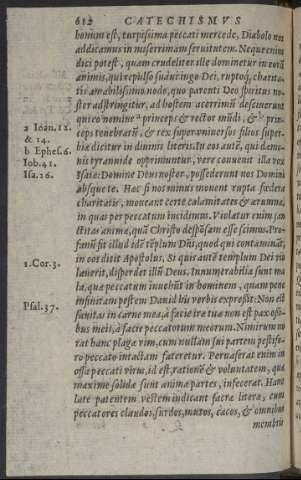 612 CATECHISMVS
hominem est, turpissima peccati mercede, Diabolo nos
addicamus in miserrimam seruitutem. Neque enim
dici potest, quàm crudeliter ille dominetur in eorũ
animis, qui repulso suaui iugo Dei, ruptoq; charita-
tis amabilissimo nodo, quo parenti Deo spiritus no-
ster adstringitur, ad hostem acerrimũ desciuerunt
a Ioan. 12. qui eo nomine a princeps & rector mũdi, & b prin-
& 14. ceps tenebrarũ, & rex super vniuersos filios super-
b Ephes. 6. biæ dicitur in diuinis literis. In eos autẽ, qui dæmo-
Iob. 41. nis tyrannide opprimuntur, verè conuenit illa vox
Isa. 26. Isaiæ: Domine Deus noster, possederunt nos Domini
absque te. Hæc si nos minus mouent rupta fœdera
charitatis, moueant certè calamitates & ærumnæ,
in quas per peccatum incidimus. Violatur enim san
ctitas animæ, quã Christo despõsam esse scimus. Pro-
fanũ fit illud idẽ tẽplum Dñi, quod qui contaminãt,
1. Cor. 3. in eos dicit Apostolus, Si quis autẽ templum Dei vio
lauerit, disperdet illũ Deus. Innumerabilia sunt ma
la, quæ peccatum inuehit in hominem, quam penè
infinitam pestem Dauid his verbis expressit: Non est
Psal. 37. sanitas in carne mea, à facie iræ tuæ non est pax ossi-
bus meis, à facie peccatorum meorum. Nimirum no
rat hanc plagæ vim, cum nullam sui partem pestife-
ro peccato intactam fateretur. Peruaserat enim in
ossa peccati virus, id est, rationẽ & voluntatem, quæ
maximè solidæ sunt animæ partes, infecerat. Hanc
latè patentem pestem indicant sacræ literæ, cum
peccatores claudos, surdos, mutos, cæcos, & omnibus
membris